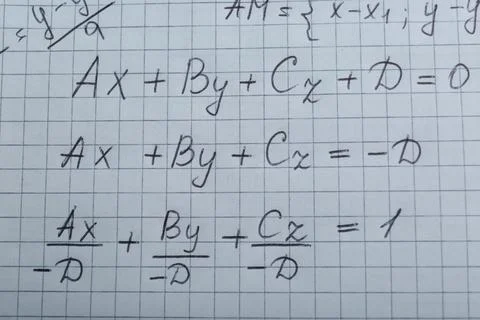 = y-y/a AM = { x-x₁ ; y-y
Ax + By + Cz + D = 0
Ax + By + Cz = -D
Ax/-D + By/-D + Cz/-D = 1